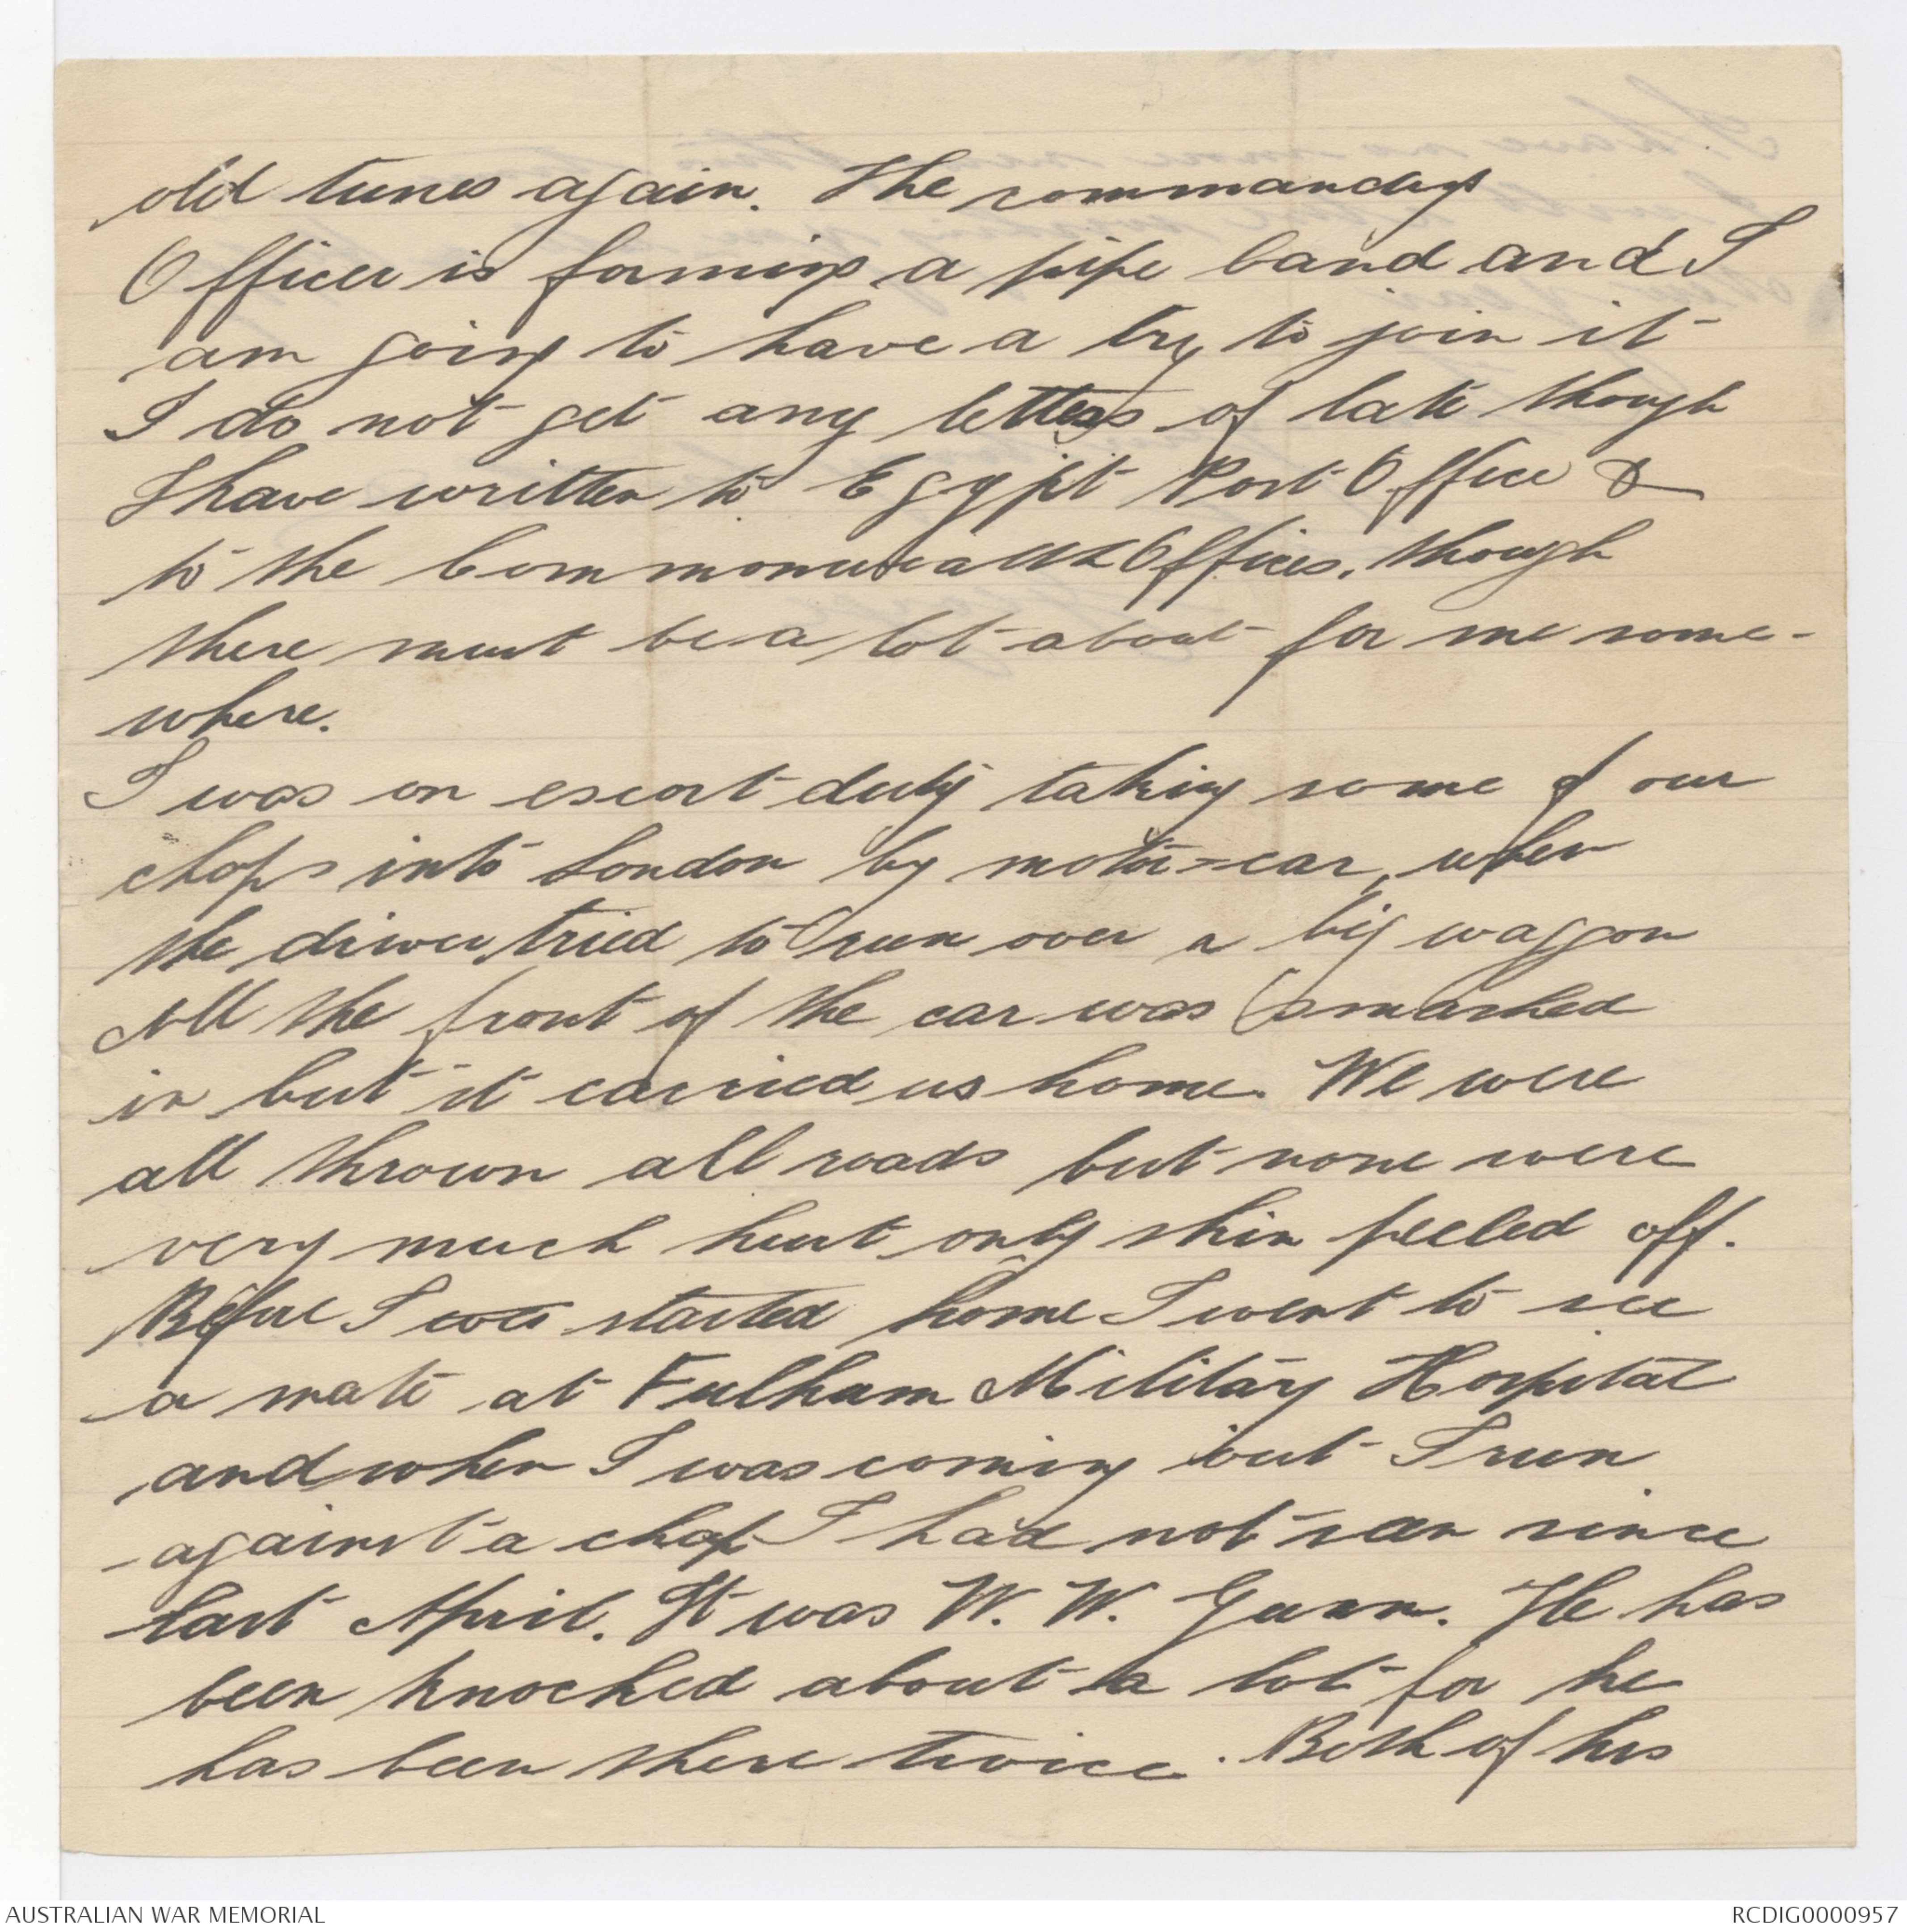 old tunes again. The commandg
Officer is forming a pipe band and I
am going to have a try to join it
I do not get any letters of late though
I have written to Egypt Post Office &
to the Commonwealth Offices, though
there must be a lot about for me some-
where.
I was on escort duty taking some of our
chaps into London by motor-car, when
the driver tried to run over a big waggon
All the front of the car was smashed
in but it carried us home. We were
all thrown all roads but none were
very much hurt only skin peeled off.
Before I was started home I went to see
a mate at Fulham Military Hospital
and when I was coming out I run
against a chap I had not seen since
last April. It was W. W. Gunn. He has
been knocked about a lot for he
has been there twice. Both of his
AUSTRALIAN WAR MEMORIAL
RCDIG0000957